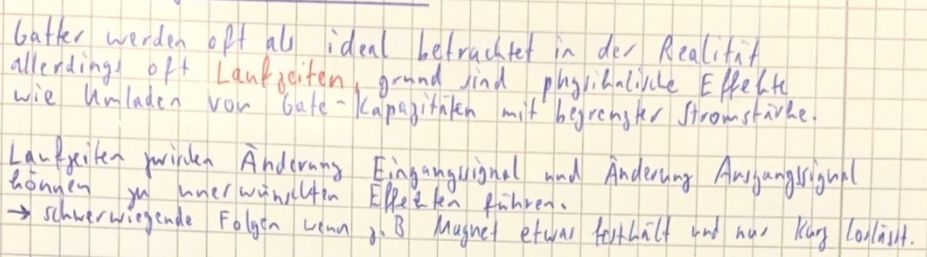 Gatter werden oft als ideal betrachtet in der Realität
allerdings oft Laufzeiten, grund sind physikalische Effekte
wie Umladen von Gate-Kapazitäten mit begrenzter Stromstärke.
Laufzeiten zwischen Änderung Eingangssignal und Änderung Ausgangssignal
können zu unerwünschten Effekten führen.
→ schwerwiegende Folgen wenn z.B Magnet etwas festhält und nur kurz loslässt.